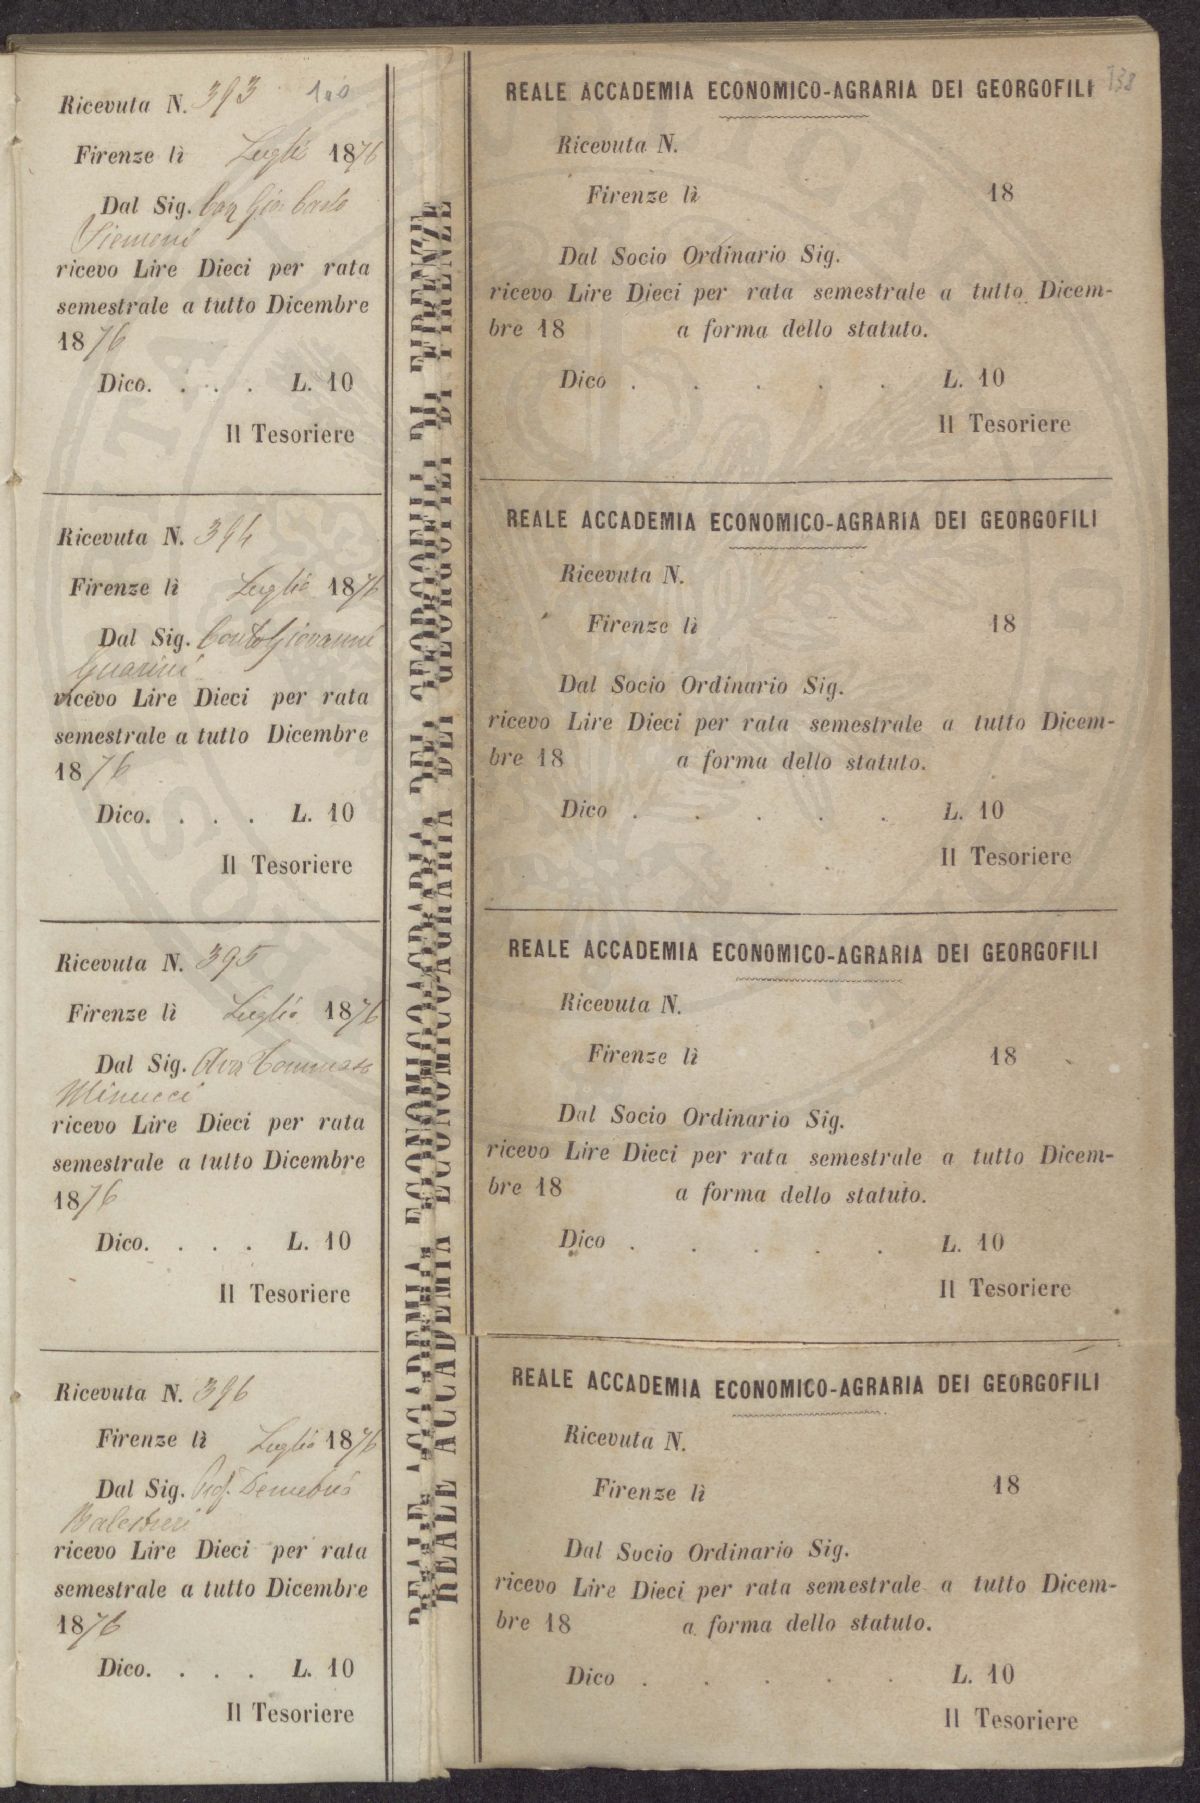 Ricevuta N. 393
Firenze lì Luglio 1876
Dal Sig. Cav Gio Carlo
Siemoni
ricevo Lire Dieci per rata
semestrale a tutto Dicembre
1876
Dico. . . . L. 10
Il Tesoriere
Ricevuta N. 394
Firenze lì Luglio 1876
Dal Sig. Conte Giovanni
Guarini
ricevo Lire Dieci per rata
semestrale a tutto Dicembre
1876
Dico. . . . L. 10
Il Tesoriere
Ricevuta N. 395
Firenze lì Luglio 1876
Dal Sig. Avv Tommaso
Minucci
ricevo Lire Dieci per rata
semestrale a tutto Dicembre
1876
Dico. . . . L. 10
Il Tesoriere
Ricevuta N. 396
Firenze lì Luglio 1876
Dal Sig. Prof. Demetrio
Balestrieri
ricevo Lire Dieci per rata
semestrale a tutto Dicembre
1876
Dico. . . . L. 10
Il Tesoriere
REALE ACCADEMIA ECONOMICO-AGRARIA DEI GEORGOFILI DI FIRENZE
138
REALE ACCADEMIA ECONOMICO-AGRARIA DEI GEORGOFILI
Ricevuta N.
Firenze lì 18
Dal Socio Ordinario Sig.
ricevo Lire Dieci per rata semestrale a tutto Dicem-
bre 18 a forma dello statuto.
Dico . . . . . L. 10
Il Tesoriere
REALE ACCADEMIA ECONOMICO-AGRARIA DEI GEORGOFILI
Ricevuta N.
Firenze lì 18
Dal Socio Ordinario Sig.
ricevo Lire Dieci per rata semestrale a tutto Dicem-
bre 18 a forma dello statuto.
Dico . . . . . L. 10
Il Tesoriere
REALE ACCADEMIA ECONOMICO-AGRARIA DEI GEORGOFILI
Ricevuta N.
Firenze lì 18
Dal Socio Ordinario Sig.
ricevo Lire Dieci per rata semestrale a tutto Dicem-
bre 18 a forma dello statuto.
Dico . . . . . L. 10
Il Tesoriere
REALE ACCADEMIA ECONOMICO-AGRARIA DEI GEORGOFILI
Ricevuta N.
Firenze lì 18
Dal Socio Ordinario Sig.
ricevo Lire Dieci per rata semestrale a tutto Dicem-
bre 18 a forma dello statuto.
Dico . . . . . L. 10
Il Tesoriere